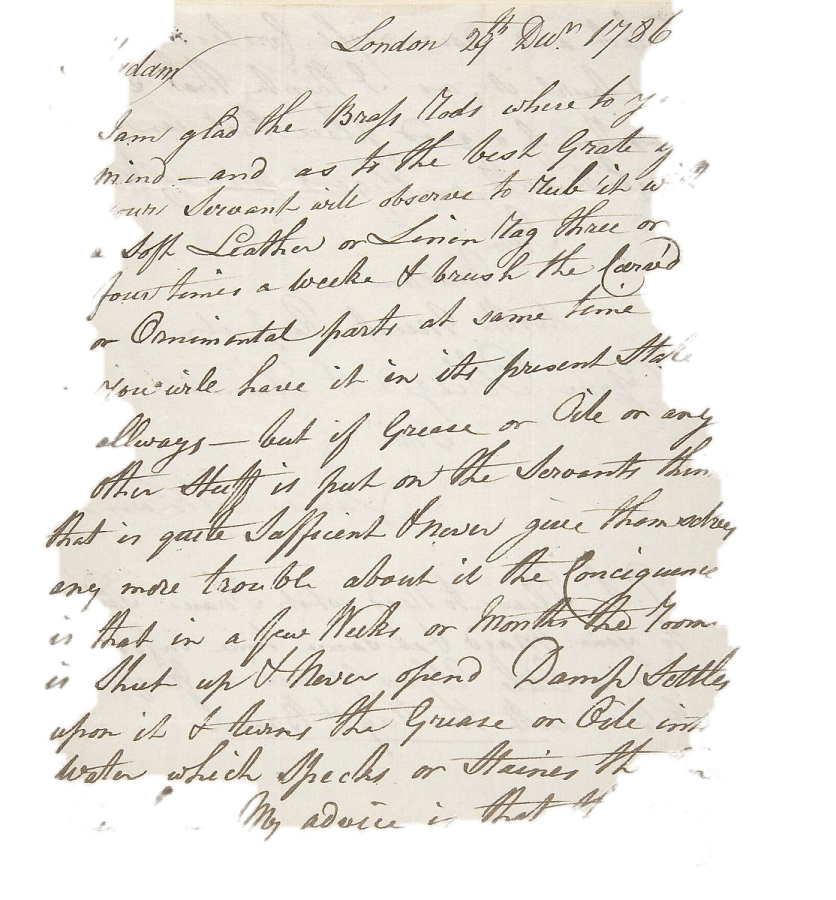 London 29th Decr. 1786
dam
I am glad the Brass Rods where to y
mind - and as to the best Grate
your Servant will observe to Rub it w
a Soft Leather or Linin Rag three or
four times a weeke & brush the Carv'd
or Ornimental parts at same time
you will have it in its present State
allways - but if Grease or Oile or any
other Stuff is put on the Servants thin
that is quite Sufficent & never give themselves
any more trouble about it the Conciquence
is that in a few Weeks or Months the Room
is Shut up & Never opend Damp Settles
upon it & turns the Grease or Oile into
Water which Specks or Staines th
My advice is that